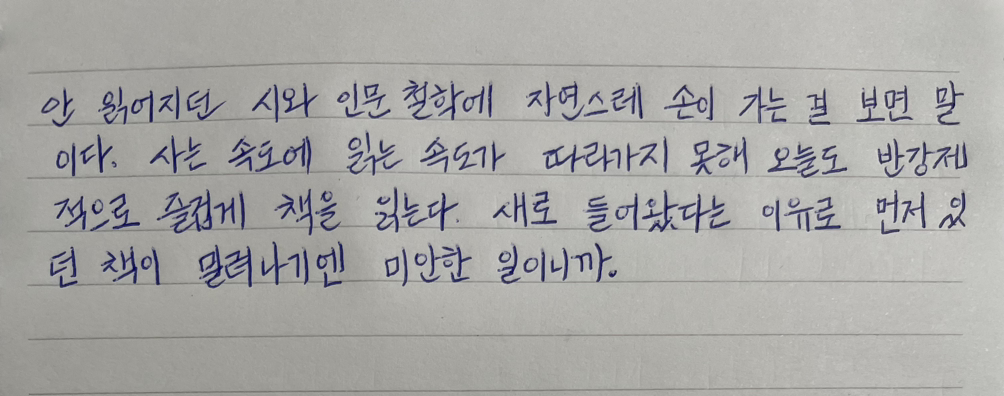 안 읽어지던 시와 인문 철학에 자연스레 손이 가는 걸 보면 말
이다. 사는 속도에 읽는 속도가 따라가지 못해 오늘도 반강제
적으로 즐겁게 책을 읽는다. 새로 들어왔다는 이유로 먼저 있
던 책이 밀려나기엔 미안한 일이니까.